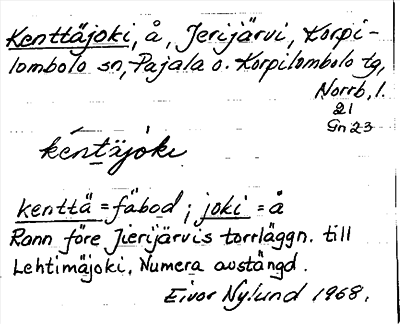 Kenttäjoki, å, Jerijärvi, Korpi-
lombolo sn, Pajala o. Korpilombolo tg,
Norrb. l.
21
Gn 23
kéntäjòki
kenttä = fäbod; joki = å
Rann före Jierijärvis torrläggn. till
Lehtimäjoki. Numera avstängd.
Eivor Nylund 1968.